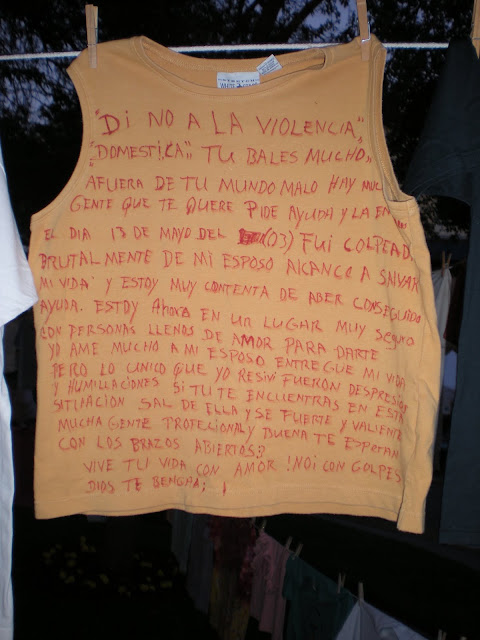 WHITE STAG
"DI NO A LA VIOLENCIA"
"DOMESTICA" TU BALES MUCHO
AFUERA DE TU MUNDO MALO HAY MUC
GENTE QUE TE QUERE PIDE AYUDA Y LA EN
EL DIA 13 DE MAYO DEL (03) FUI GOLPEAD
BRUTALMENTE DE MI ESPOSO ALCANCO A SALVAR
MI VIDA Y ESTOY MUY CONTENTA DE ABER CONSEGUIDO
AYUDA. ESTOY AhoRA EN UN LUGAR MUY SEguRo
CON PERSONAS LLENOS DE AMOR PARA DARTE
YO AME MUCHO A MI ESPOSO ENTREGUE MI VIDA
PERO LO UNICO QUE YO RESIVI FUERON DESPRESIOS
Y HUMILLACIONES SI TU TE ENCUENTRAS EN ESTA
SITUACION SAL DE ELLA Y SE FUERTE Y VALIENTE
MUCHA GENTE PROFECIONAL Y BUENA TE ESPERAN
CON LOS BRAZOS ABIERTOS??
VIVE TU VIDA CON AMOR !NO¡ CON GOLPES
DIOS TE BENGA¡